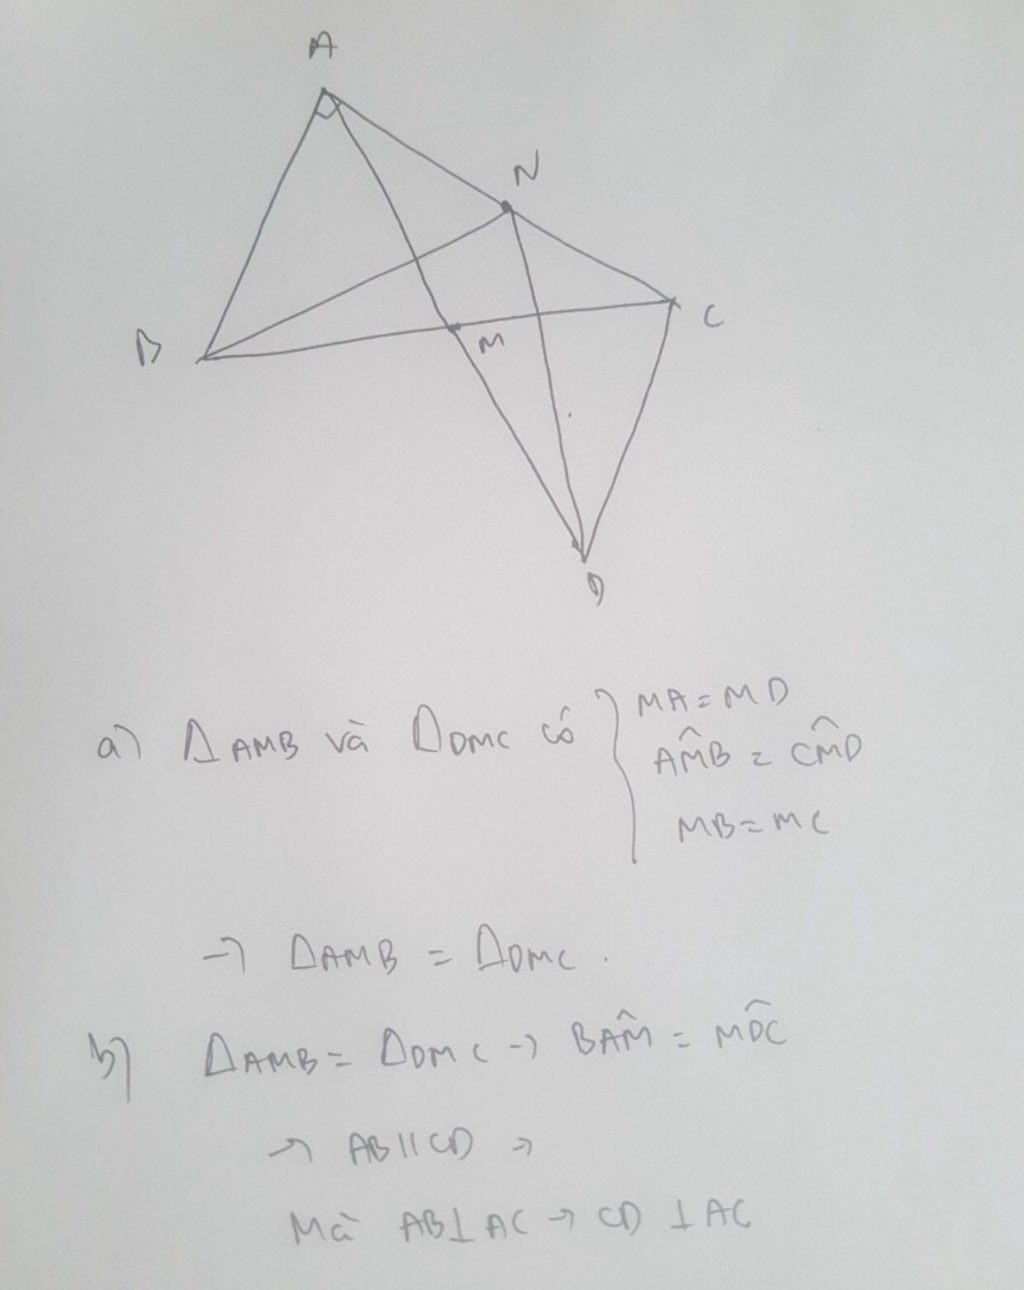 A
N
B
M
C
D
a) ΔAMB và ΔDMC có { MA = MD
AM̂B = CM̂D
MB = MC
→ ΔAMB = ΔDMC.
b) ΔAMB = ΔDMC → BÂM = MD̂C
→ AB // CD →
Mà AB ⊥ AC → CD ⊥ AC